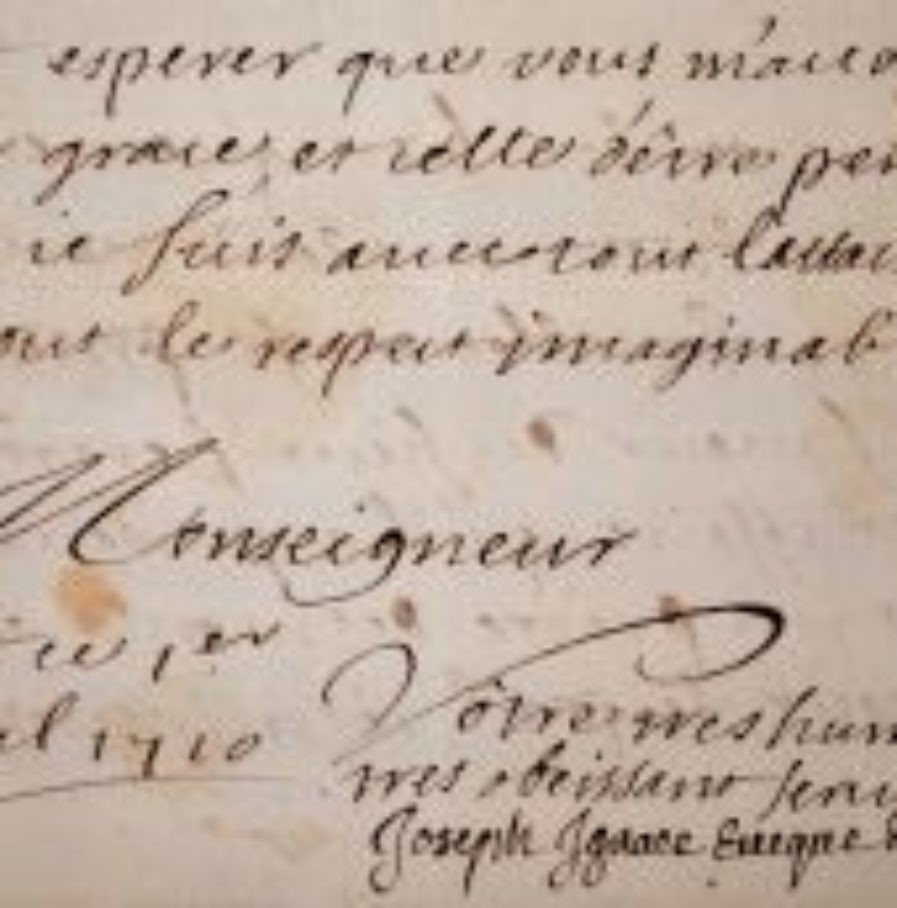 esperer que vous m'acco
grace, et celle d'être per
ie suis auec tout l'attac
out le respect imaginabl
Monseigneur
ce 1er
il 1710
Vôtre tres hum
tres obeissant seru
Joseph Ignace Eueque d